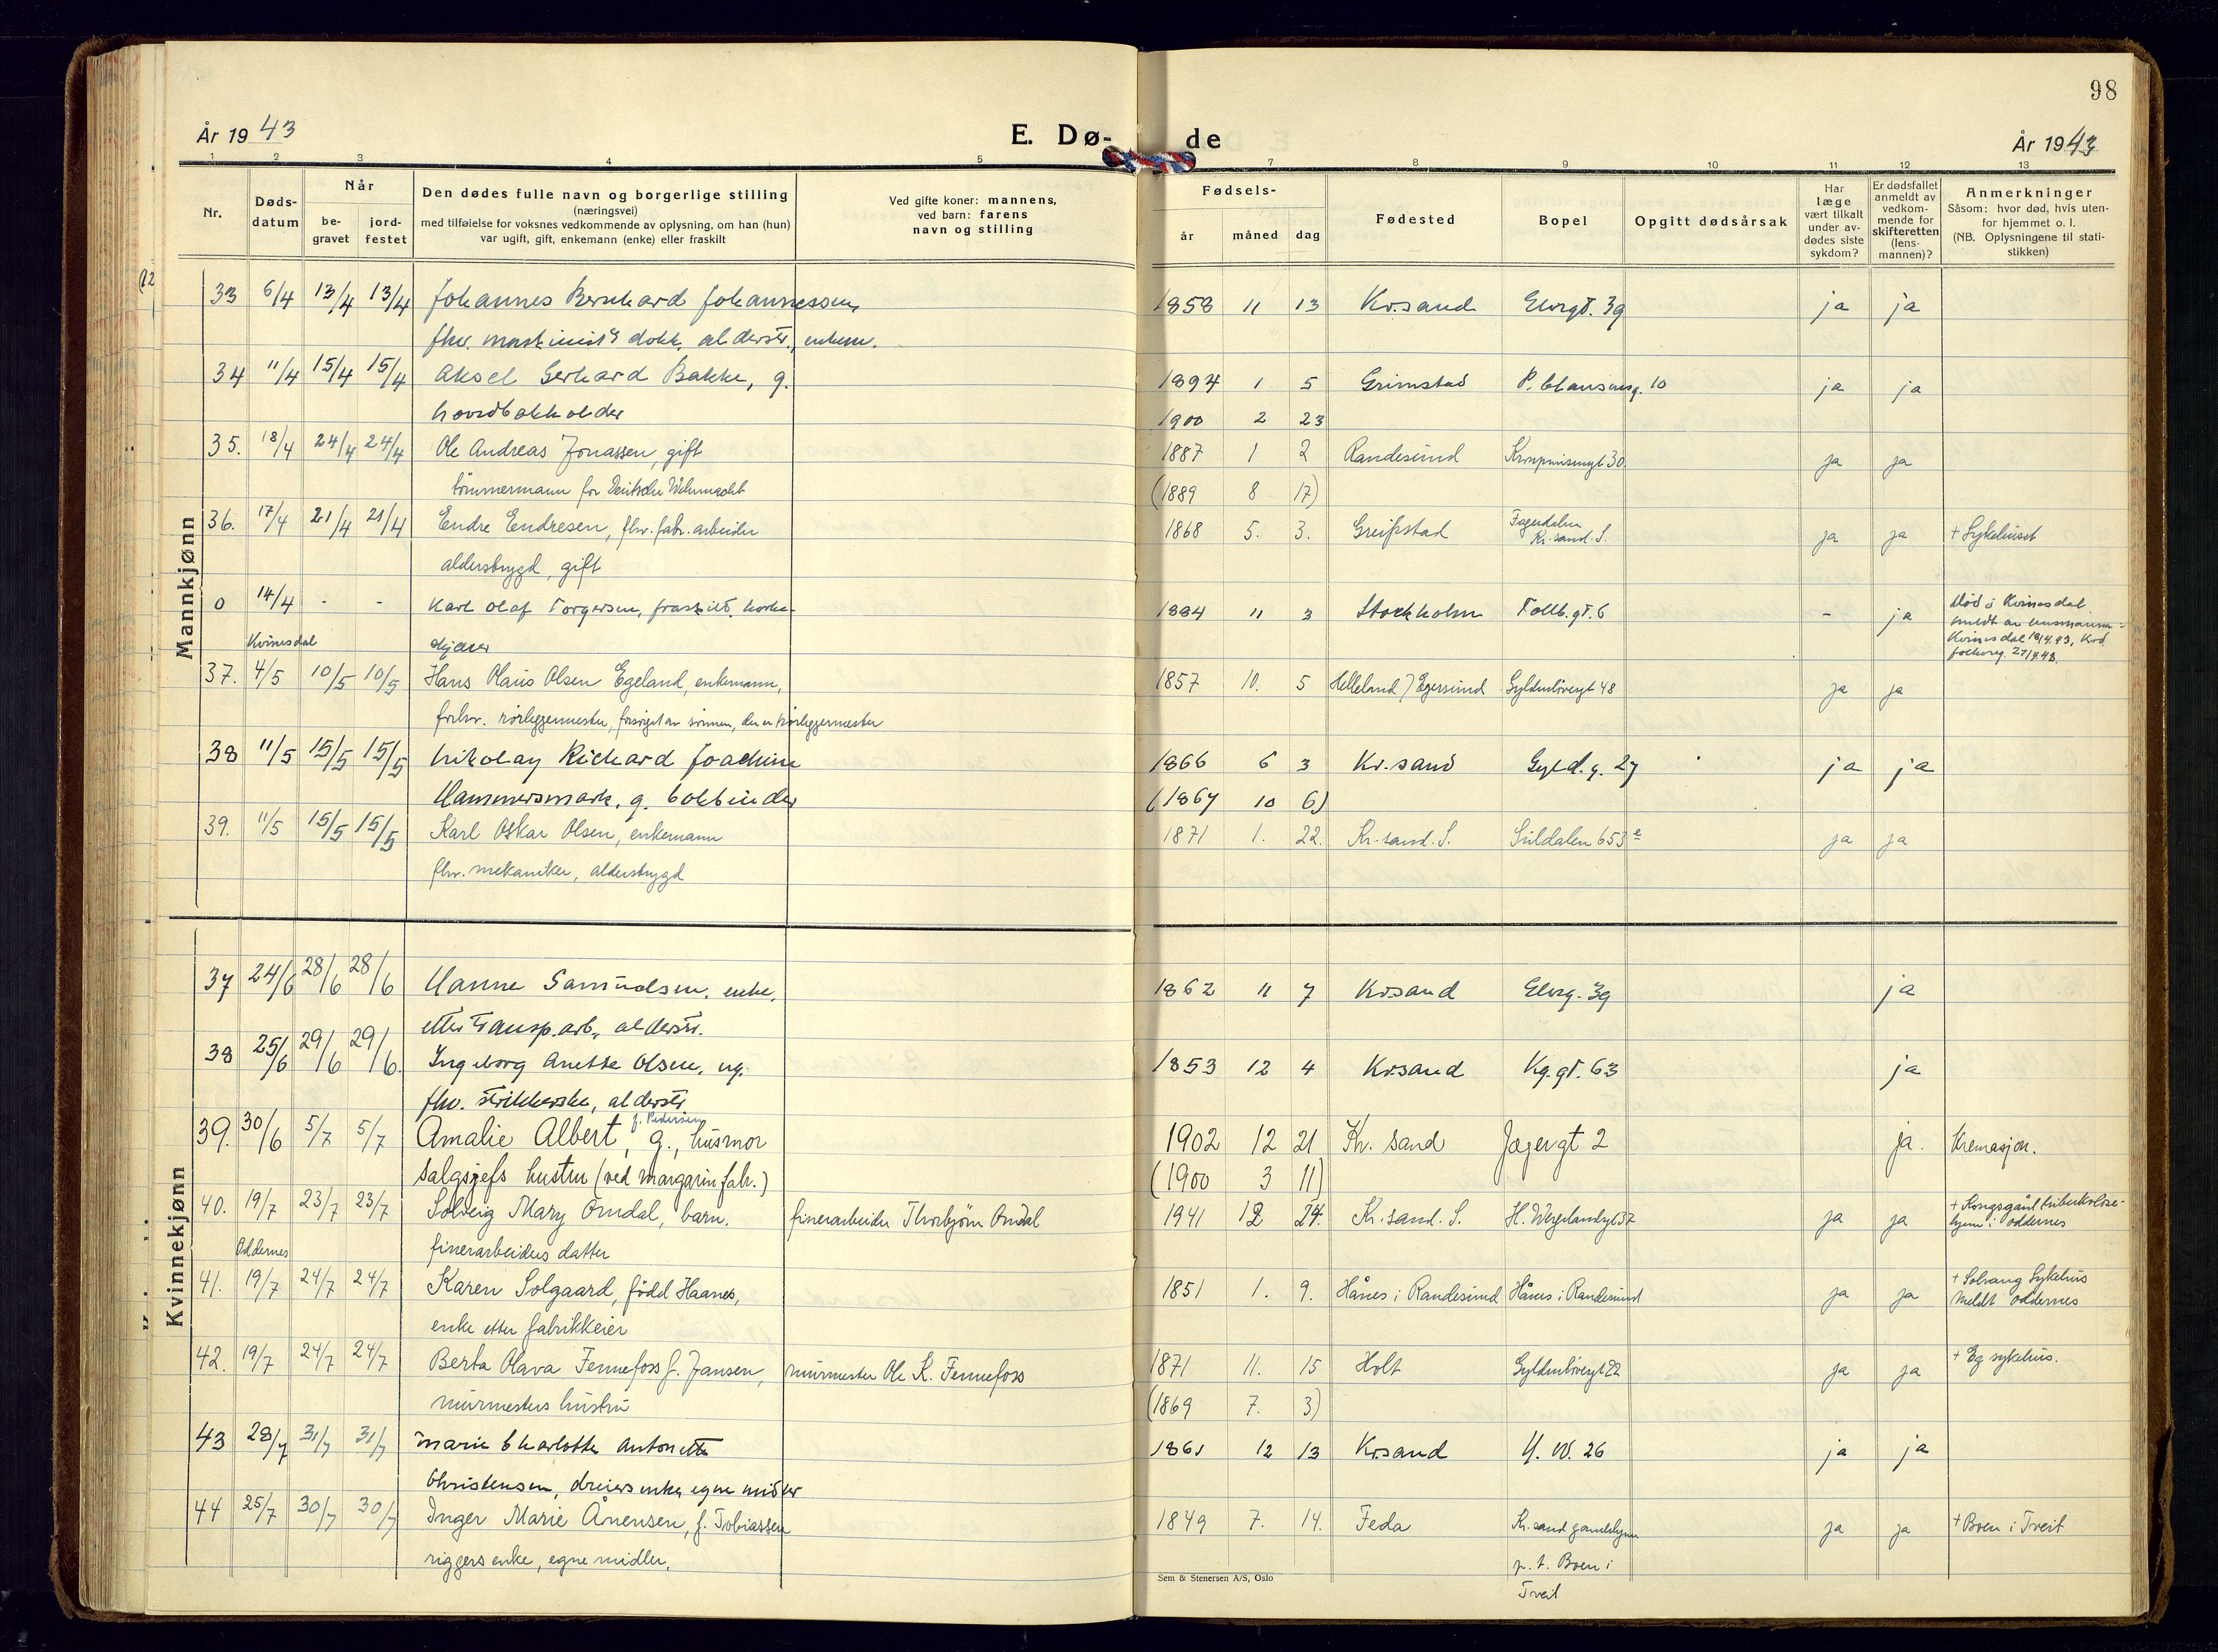 98
År 1943
E. Dø-
de
År 1943
1 2 3 4 5 7 8 9 10 11 12 13
Nr.
Døds-
datum
Når
be-
gravet
jord-
festet
Den dødes fulle navn og borgerlige stilling
(næringsvei)
med tilføielse for voksnes vedkommende av oplysning, om han (hun)
var ugift, gift, enkemann (enke) eller fraskilt
Ved gifte koner: mannens,
ved barn: farens
navn og stilling
Fødsels-
år måned dag
Fødested
Bopel
Opgitt dødsårsak
Har
læge
vært tilkalt
under av-
dødes siste
sykdom?
Er dødsfallet
anmeldt av
vedkom-
mende for
skifteretten
(lens-
mannen)?
Anmerkninger
Såsom: hvor død, hvis uten-
for hjemmet o. l.
(NB. Oplysningene til stati-
stikken)
Mannkjønn
33 6/4 13/4 13/4 Johannes Bernhard Johannessen, 1858 11 13 Kr.sand Elvegt. 39 ja ja
fhv. maskinist dokk. alderstr., enkem.
34 11/4 15/4 15/4 Aksel Gerhard Bakke, g. 1894 1 5 Grimstad P. Clausensg. 10 ja ja
hovedbokholder 1900 2 23
35. 18/4 24/4 24/4 Ole Andreas Jonassen, gift 1887 1 2 Randesund Kronprinsengt 30. ja ja
tömmermann for Deutsche Wehrmacht (1889 8 17)
36. 17/4 21/4 21/4 Endre Endresen, fhv. fabr. arbeider 1868 5. 3. Greipstad Fagerdalen Kr.sand. S. ja ja + Sykehuset
alderstrygd, gift
0 14/4 - - Karl Olaf Torgersen, fraskilt. korke- 1884 11 3 Stockholm Tollb.gt. 6 - ja död i Kvinesdal
Kvinesdal skjærer
37. 4/5 10/5 10/5 Hans Olaus Olsen Egeland, enkemann, 1857 10. 5 Helleland / Egersund Gyldenlövesgt 48 ja ja
forhv. rörleggermester, forsörget av sönnen, der er rörleggermester
38 11/5 15/5 15/5 Nikolay Rickard Joachim 1866 6 3 Kr.sand Gyld.g. 27 ja ja
Hammersmark, g. bokbinder (1867 10 6)
39. 11/5 15/5 15/5 Karl Oskar Olsen, enkemann 1871 1. 22. Kr.sand. S. Suldalen 653 e ja ja
fhv. mekaniker, alderstrygd
Kvinnekjønn
37 24/6 28/6 28/6 Hanne Samuelsen, enke, 1862 11 7 Kr.sand Elveg. 39 ja
etter transp.arb., alderstr.
38 25/6 29/6 29/6. Ingeborg Anette Olsen, ug. 1853 12 4 Kr.sand Kg.gt. 63 ja
fhv. strikkerske, alderstr.
39. 30/6 5/7 5/7 Amalie Albert, f. Pedersen g., husmor 1902 12 21 Kr. sand Jægergt 2 ja. Kremasjon.
salgssjefs hustru (ved margarinfabr.) (1900 3 11)
40. 19/7 23/7 23/7 Solveig Mary Omdal, barn. finerarbeider Thorbjørn Omdal 1941 12 24. Kr.sand. S. H. Wergelandsgt 37 ja ja + Kongsgård tuberkulose-
hjem i Oddernes
Oddernes finerarbeiders datter
41. 19/7 24/7 24/7 Karen Solgaard, född Haanes, 1851 1. 9. Hånes i Randesund Hånes i Randesund ja ja + Solvang Sykehus
meldt Oddernes
enke etter fabrikkeier
42. 19/7 24/7 24/7 Berta Olava Fennefoss f. Jansen, murmester Ole K. Fennefoss 1871 11. 15 Holt Gyldenlövesgt 22 ja ja + Eg sykehus.
murmesters hustru (1869 7. 3)
43 28/7 31/7 31/7 Marie Charlotte Antonette 1861 12 13 Kr.sand 26 ja ja
Christensen, dreiers enke, egne midler
44 25/7 30/7 30/7 Inger Marie Ånensen, f. Tobiassen 1849 7. 14. Feda Kr.sand gamlehjem ja ja + Boen i Tveit
riggers enke, egne midler. p. t. Boen i
Tveit
Sem & Stenersen A/S, Oslo